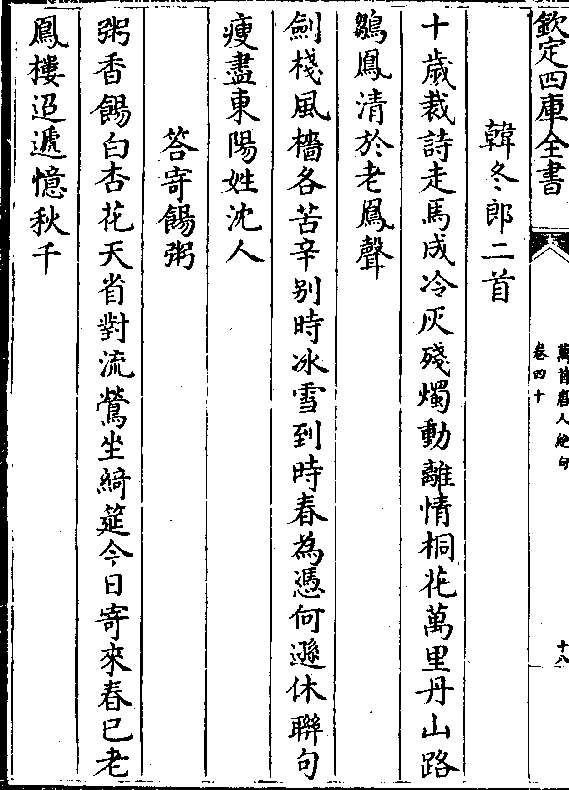 欽定四庫全書
萬首唐人絶句
卷四十
十八
韓冬郎二首
十歲裁詩走馬成冷灰殘燭動離情桐花萬里丹山路
雛鳳清於老鳳聲
劍棧風檣各苦辛别時冰雪到時春為憑何遜休聯句
瘦盡東陽姓沈人
答寄餳粥
粥香餳白杏花天省對流鶯坐綺筵今日寄來春已老
鳳樓迢遞憶秋千